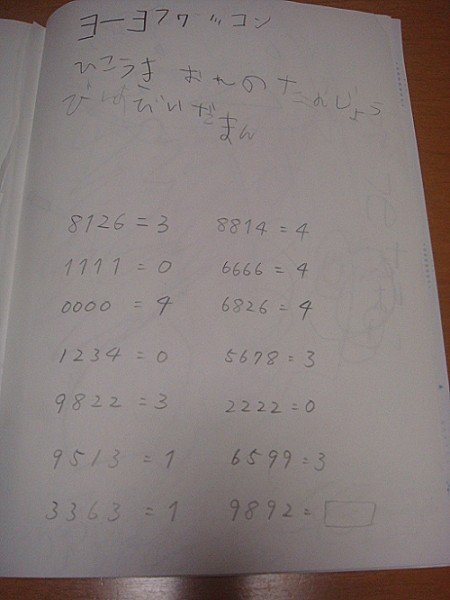 おれの たんじょう
8126 = 3 8814 = 4
1111 = 0 6666 = 4
0000 = 4 6826 = 4
1234 = 0 5678 = 3
9822 = 3 2222 = 0
9513 = 1 6599 = 3
3363 = 1 9892 =